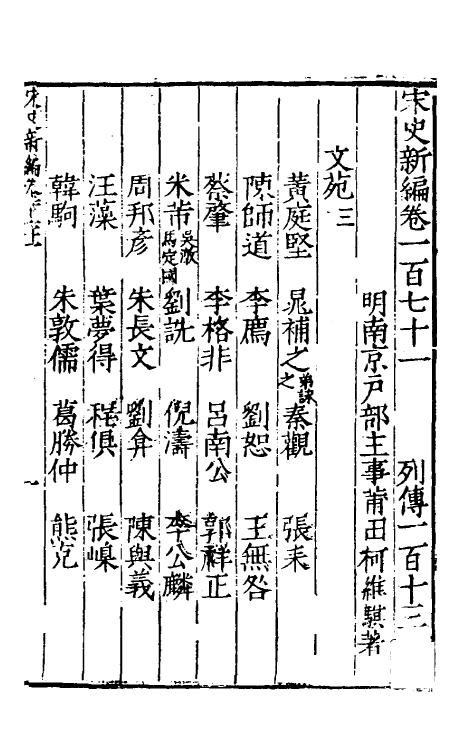 宋史新編卷一百七十一 列傳一百十三
明南京戸部主事莆田柯維騏著
文苑三
黃庭堅 晁補之 弟詠之 秦觀 張耒
陳師道 李廌 劉恕 王無咎
蔡肇 李格非 呂南公 郭祥正
米芾 吳激 馬定國 劉詵 倪濤 李公麟
周邦彥 朱長文 劉弇 陳與義
汪藻 葉夢得 程俱 張嵲
韓駒 朱敦儒 葛勝仲 熊克
宋史新編卷
一